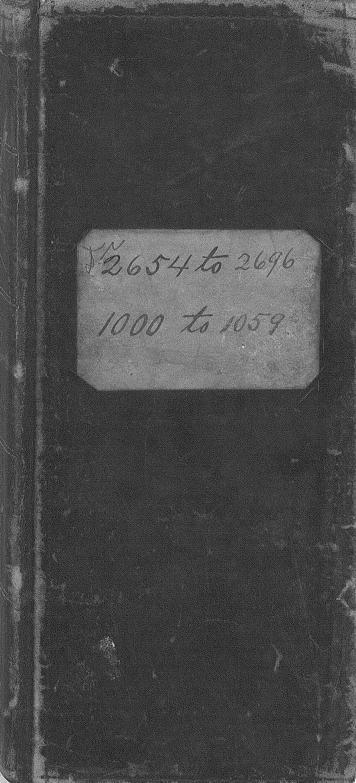 2654 to 2696
1000 to 1059